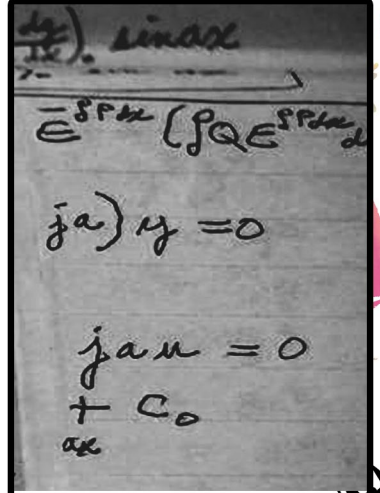 dy/dx). sin ax
ε^-∫Pdx (∫Qε^∫Pdx d
ja) y = 0
jau = 0
+ C₀
ax